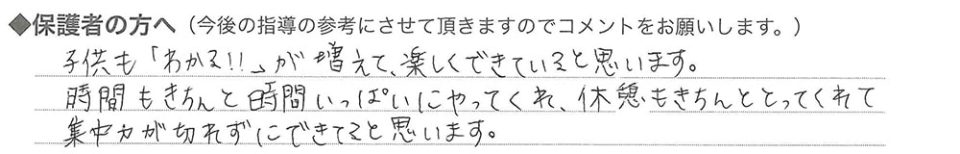 ◆保護者の方へ（今後の指導の参考にさせて頂きますのでコメントをお願いします。）
子供も「わかる!!」が増えて、楽しくできていると思います。
時間もきちんと時間いっぱいにやってくれ、休憩もきちんととってくれて
集中力が切れずにできてると思います。